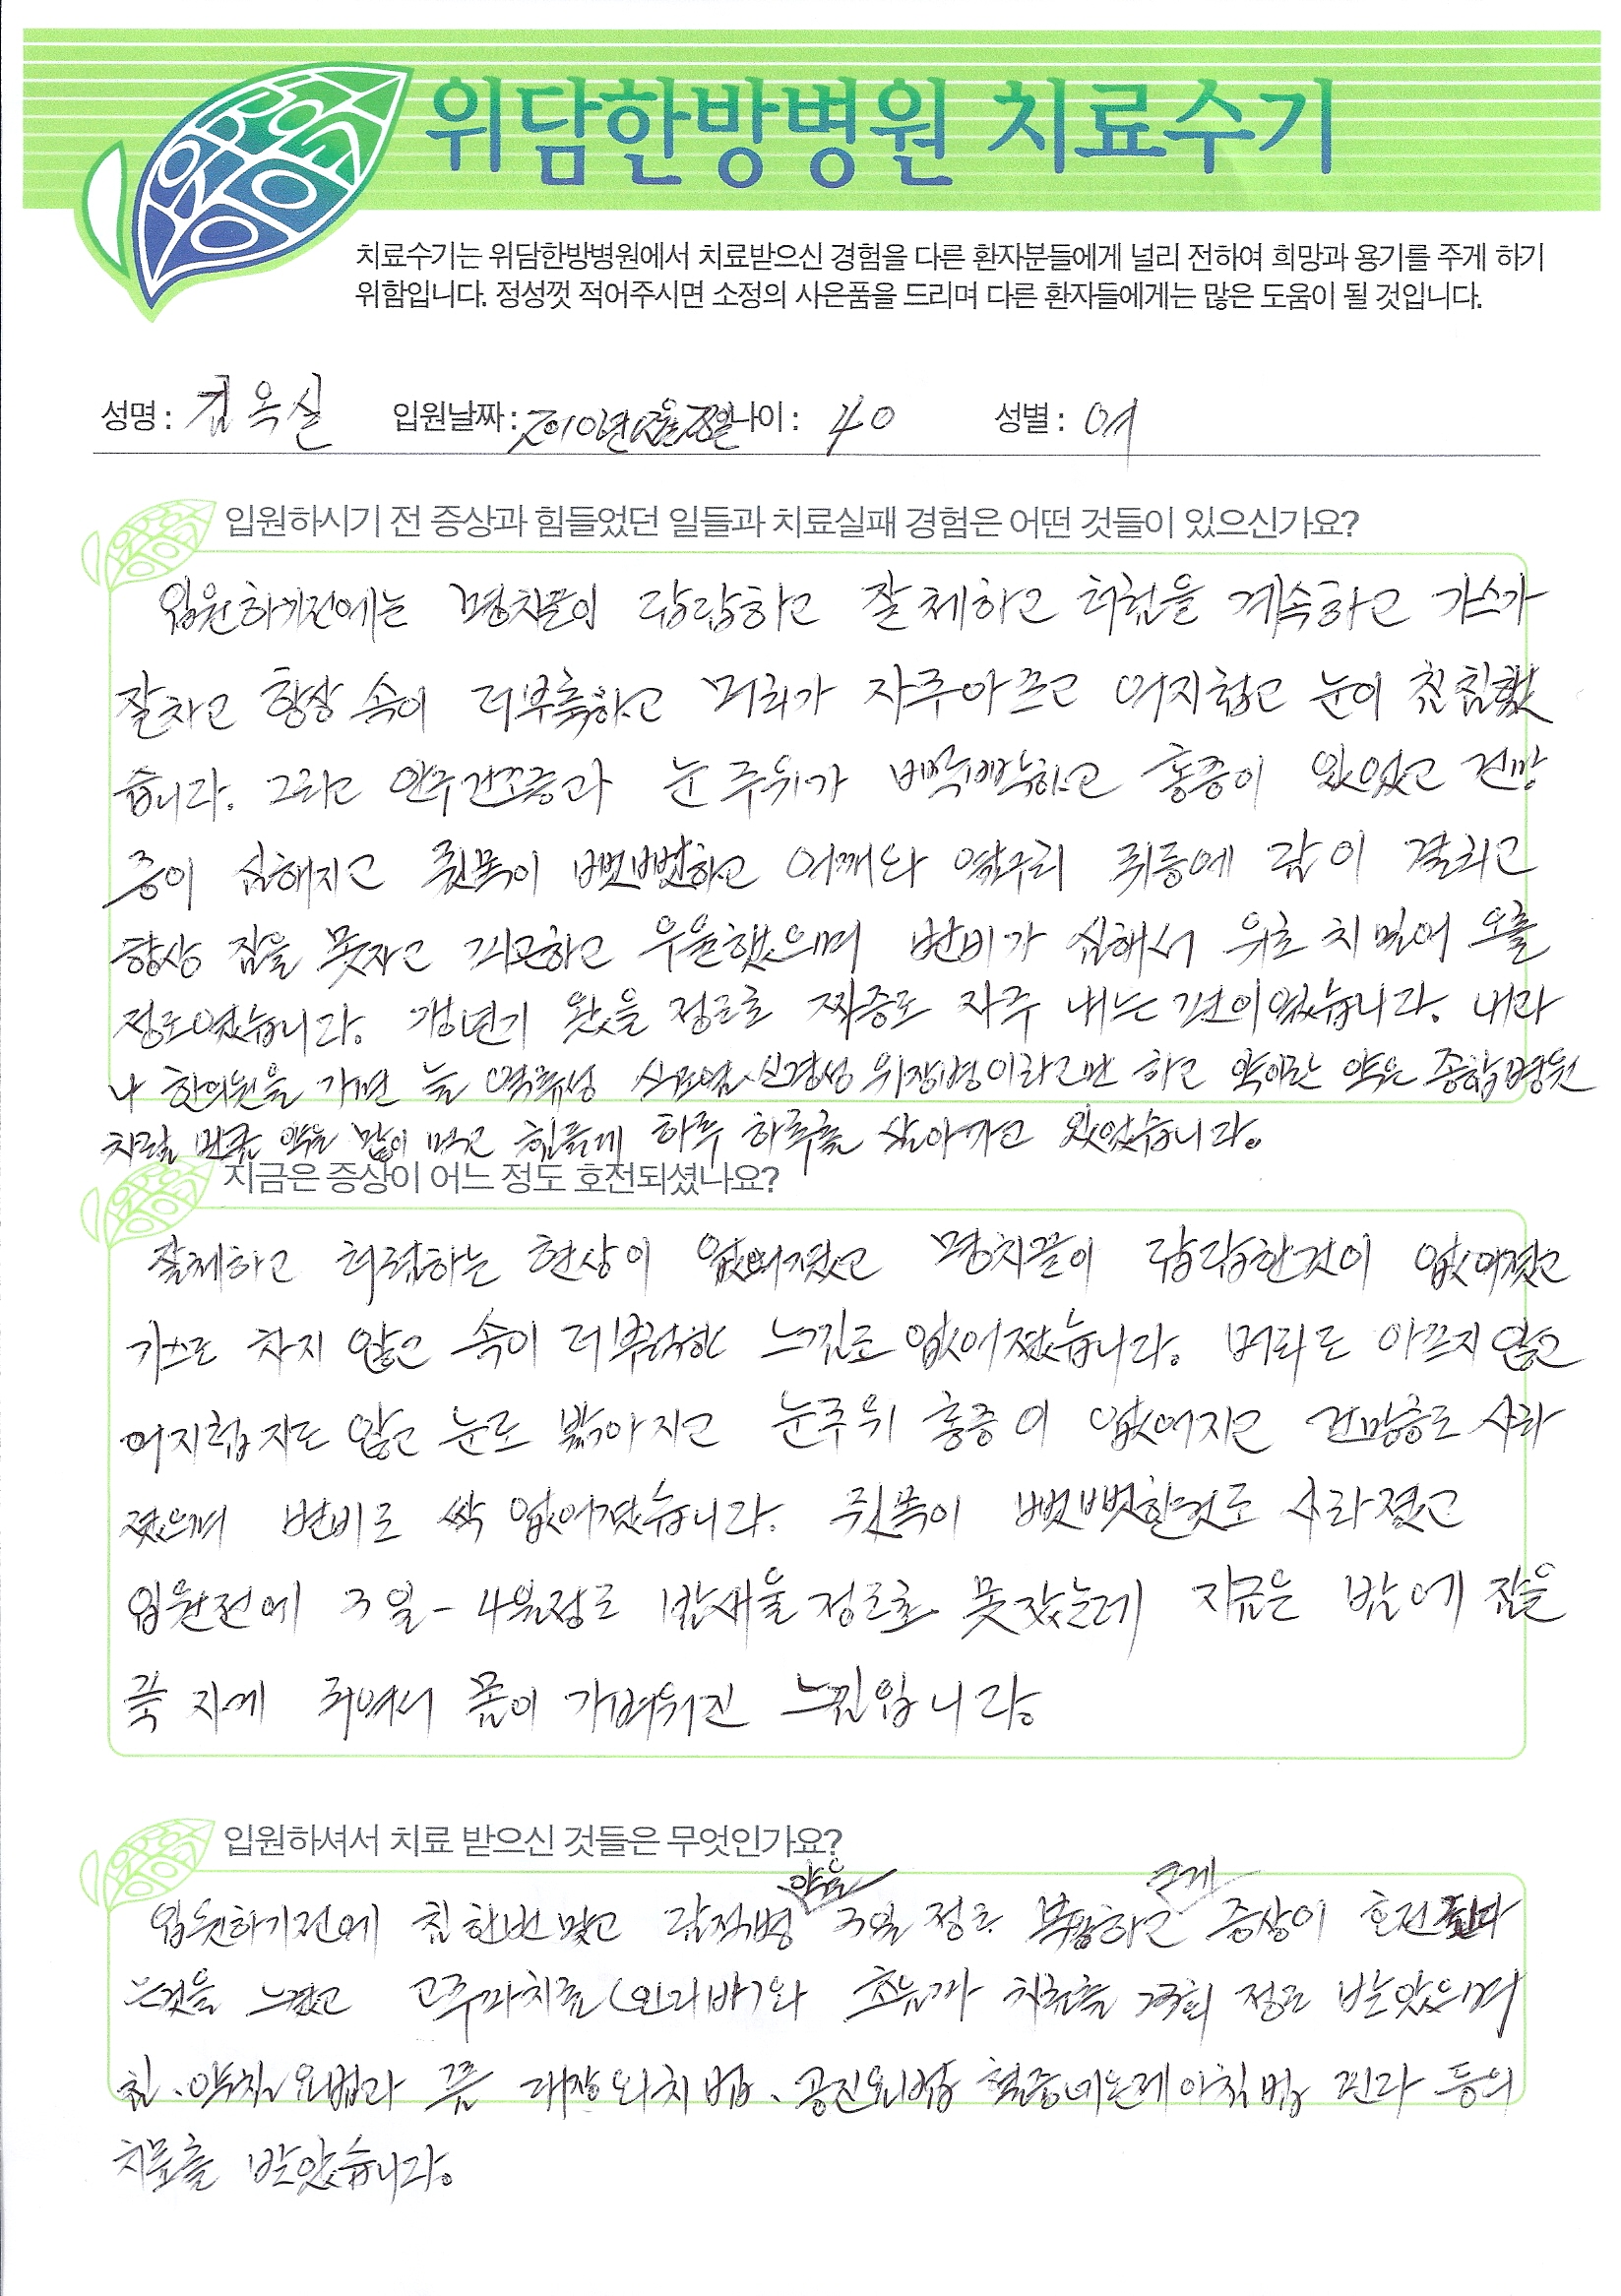 위담한방병원 치료수기
치료수기는 위담한방병원에서 치료받으신 경험을 다른 환자분들에게 널리 전하여 희망과 용기를 주게 하기
위함입니다. 정성껏 적어주시면 소정의 사은품을 드리며 다른 환자들에게는 많은 도움이 될 것입니다.
성명 : 김옥실 입원날짜 : 나이 : 40 성별 : 여
입원하시기 전 증상과 힘들었던 일들과 치료실패 경험은 어떤 것들이 있으신가요?
입원하기전에는 명치끝이 답답하고 잘 체하고 트림을 계속하고 가스가
잘차고 항상 속이 더부룩하고 머리가 자주아프고 어지럽고 눈이 침침했
습니다. 그리고 안구건조증과 눈 주위가 뻑뻑하고 통증이 있었고 건망
증이 심해지고 뒷목이 뻣뻣하고 어깨와 옆구리 쥐등에 담이 결리고
항상 잠을 못자고 피곤하고 우울했으며 변비가 심해서 위로 치밀어 오를
정도였습니다. 갱년기 왔을 정도로 짜증도 자주 내는 편이였습니다. 내과
나 한의원을 가면 늘 역류성 식도염, 신경성 위장병이라고만 하고 약이란 약은 종합병원
처럼 만큼 약을 많이 먹고 힘들게 하루 하루를 살아가고 있었습니다.
지금은 증상이 어느 정도 호전되셨나요?
잘체하고 트림하는 현상이 없어졌고 명치끝이 답답한것이 없어졌고
가스도 차지 않고 속이 더부룩한 느낌도 없어졌습니다. 머리도 아프지 않고
어지럽지도 않고 눈도 밝아지고 눈주위 통증이 없어지고 건망증도 사라
졌으며 변비도 싹 없어졌습니다. 뒷목이 뻣뻣한것도 사라졌고
입원전에 3일-4일정도 밤새울 정도로 못잤는데 지금은 밤에 잠을
푹 자게 되어서 몸이 가벼워진 느낌입니다.
입원하셔서 치료 받으신 것들은 무엇인가요?
입원하기전에 침한번 맞고 담적병 약을 3일 정도 복용하고 크게 증상이 호전된다
는것을 느꼈고 고주파치료(인디바)와 초음파 치료를 정도 받았으며
침, 약침 요법과 뜸 대장 외치법, 공진요법 등의
치료를 받았습니다.